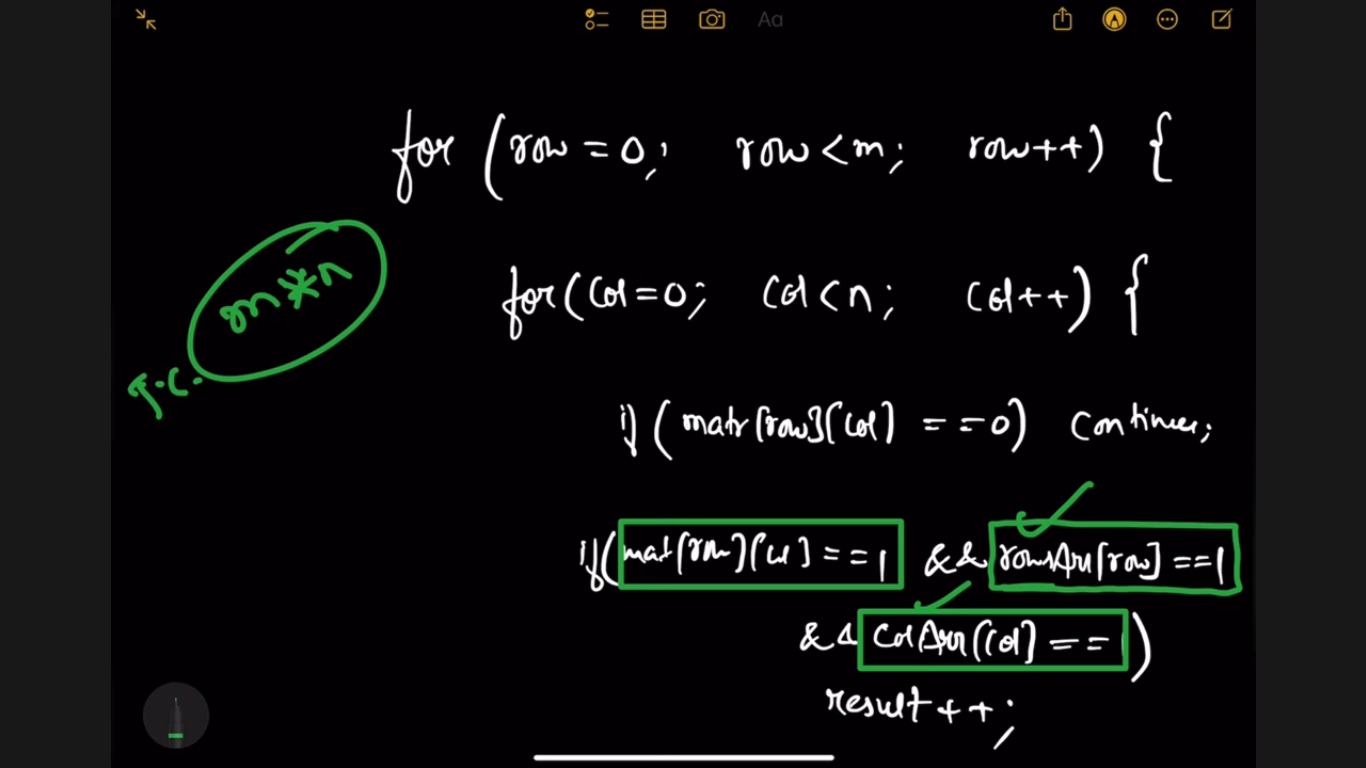 Aa
for (row = 0; row < m; row++) {
m * n
for(col = 0; col < n; col++) {
T.C.
if (matr[row][col] == 0) continue;
if(mat[row][col] == 1 && rowsArr[row] == 1
&& colArr[col] == 1)
result++;